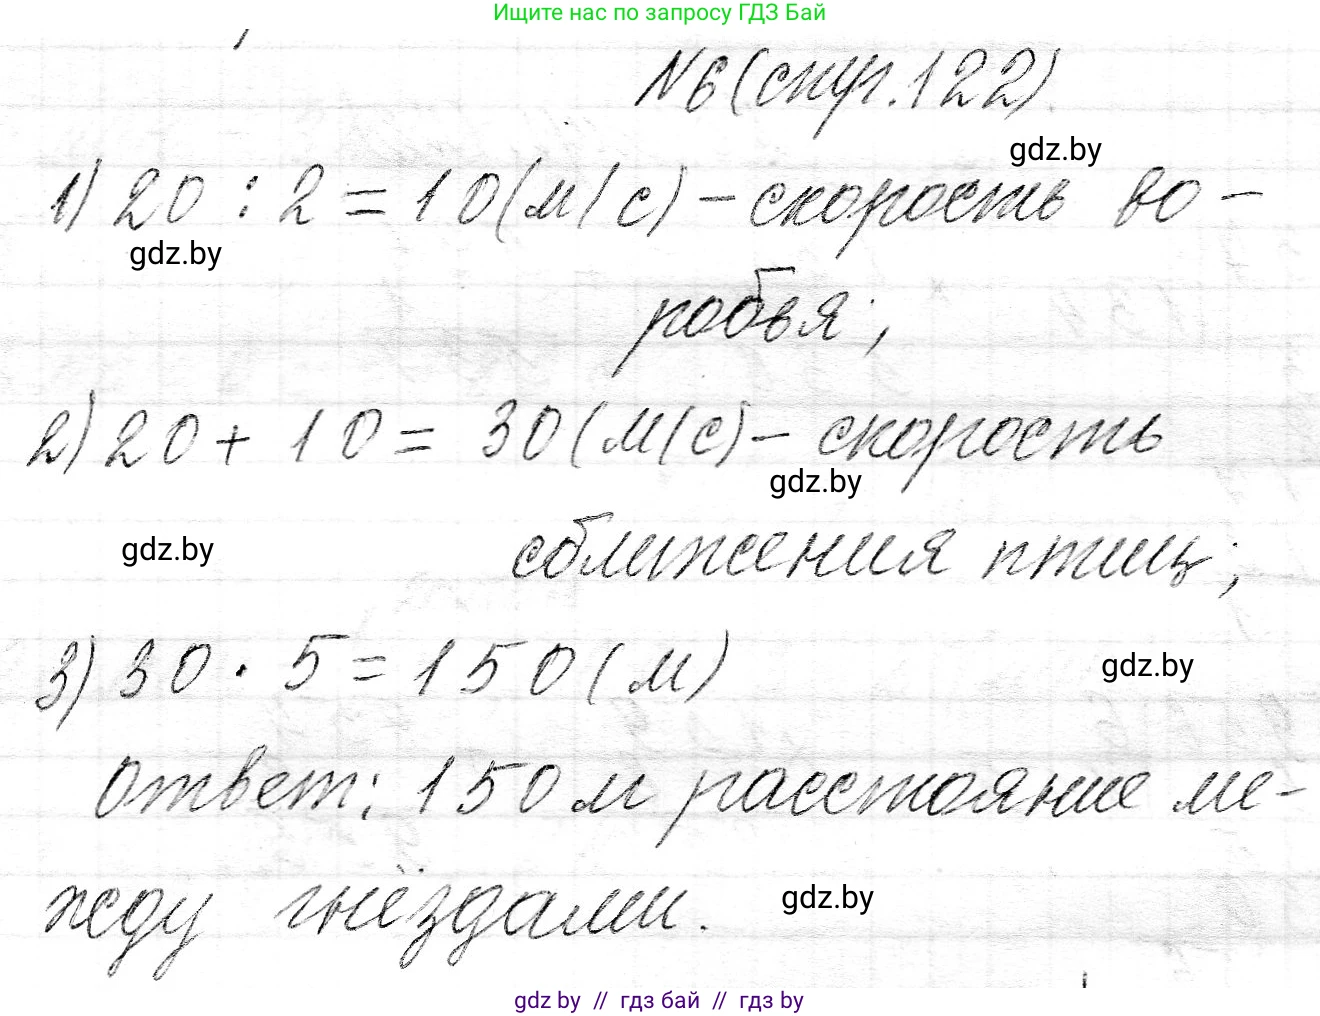 Ищите нас по запросу ГДЗ Бай
№6 (стр. 122)
gdz.by
1) 20 : 2 = 10 (м/с) - скорость во-
gdz.by
робья;
2) 20 + 10 = 30 (м/с) - скорость
gdz.by
gdz.by
сближения птиц;
3) 30 · 5 = 150 (м)
gdz.by
Ответ: 150 м расстояние ме-
жду гнёздами.
gdz.by
gdz by // гдз бай // гдз by